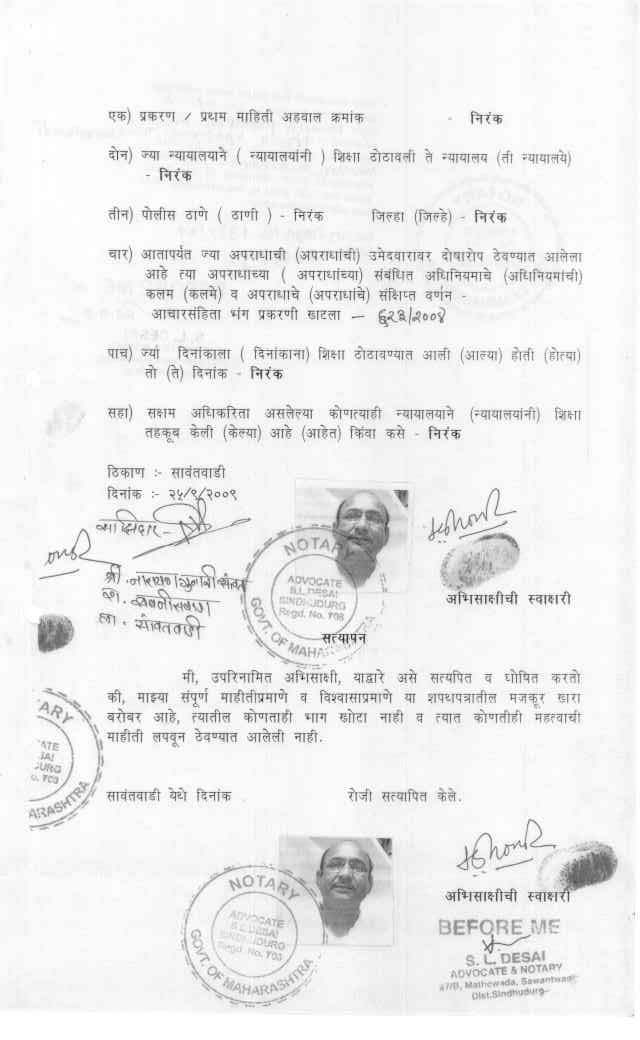 एक) प्रकरण / प्रथम माहिती अहवाल क्रमांक - निरंक
दोन) ज्या न्यायालयाने ( न्यायालयांनी ) शिक्षा ठोठावली ते न्यायालय (ती न्यायालये)
- निरंक
तीन) पोलीस ठाणे ( ठाणी ) - निरंक जिल्हा (जिल्हे) - निरंक
चार) आतापर्यंत ज्या अपराधाची (अपराधांची) उमेदवारावर दोषारोप ठेवण्यात आलेला
आहे त्या अपराधाच्या ( अपराधांच्या) संबंधित अधिनियमाचे (अधिनियमांची)
कलम (कलमे) व अपराधाचे (अपराधांचे) संक्षिप्त वर्णन -
आचारसंहिता भंग प्रकरणी खटला - ६२३/२००४
पाच) ज्यां दिनांकाला ( दिनांकाना) शिक्षा ठोठावण्यात आली (आल्या) होती (होत्या)
तो (ते) दिनांक - निरंक
सहा) सक्षम अधिकरिता असलेल्या कोणत्याही न्यायालयाने (न्यायालयांनी) शिक्षा
तहकूब केली (केल्या) आहे (आहेत) किंवा कसे - निरंक
ठिकाण :- सावंतवाडी
दिनांक :- २५/९/२००९
NOTARY
ADVOCATE
S.L.DESAI
SINDHUDURG
Regd. No. 703
GOVT. OF MAHARASHTRA
अभिसाक्षीची स्वाक्षरी
रा. सावंतवाडी
सत्यापन
मी, उपरिनामित अभिसाक्षी, याद्वारे असे सत्यपित व घोषित करतो
की, माझ्या संपूर्ण माहीतीप्रमाणे व विश्वासाप्रमाणे या शपथपत्रातील मजकूर खारा
बरोबर आहे, त्यातील कोणताही भाग खोटा नाही व त्यात कोणतीही महत्वाची
माहीती लपवून ठेवण्यात आलेली नाही.
सावंतवाडी येथे दिनांक रोजी सत्यापित केले.
NOTARY
ADVOCATE
S.L.DESAI
SINDHUDURG
Regd. No. 703
GOVT. OF MAHARASHTRA
अभिसाक्षीची स्वाक्षरी
BEFORE ME
S. L. DESAI
ADVOCATE & NOTARY
47/B, Mathewada, Sawantwadi
Dist.Sindhudurg